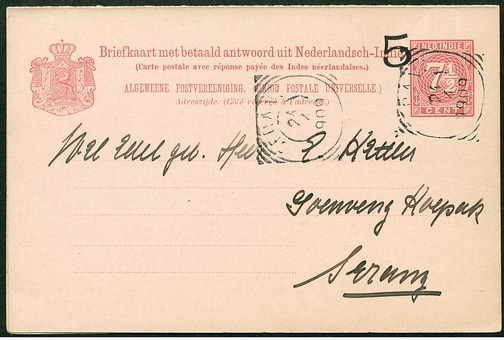 Briefkaart met betaald antwoord uit Nederlandsch-Indië
5
(Carte postale avec réponse payée des Indes néerlandaises.)
ALGEMEENE POSTVEREENIGING. (UNION POSTALE UNIVERSELLE.)
Adreszijde. (Côté réservé à l'adresse.)
NED. INDIE
7½
CENT
Wel Edel geb. Heer E.
Goenoeng Koepak
Serang